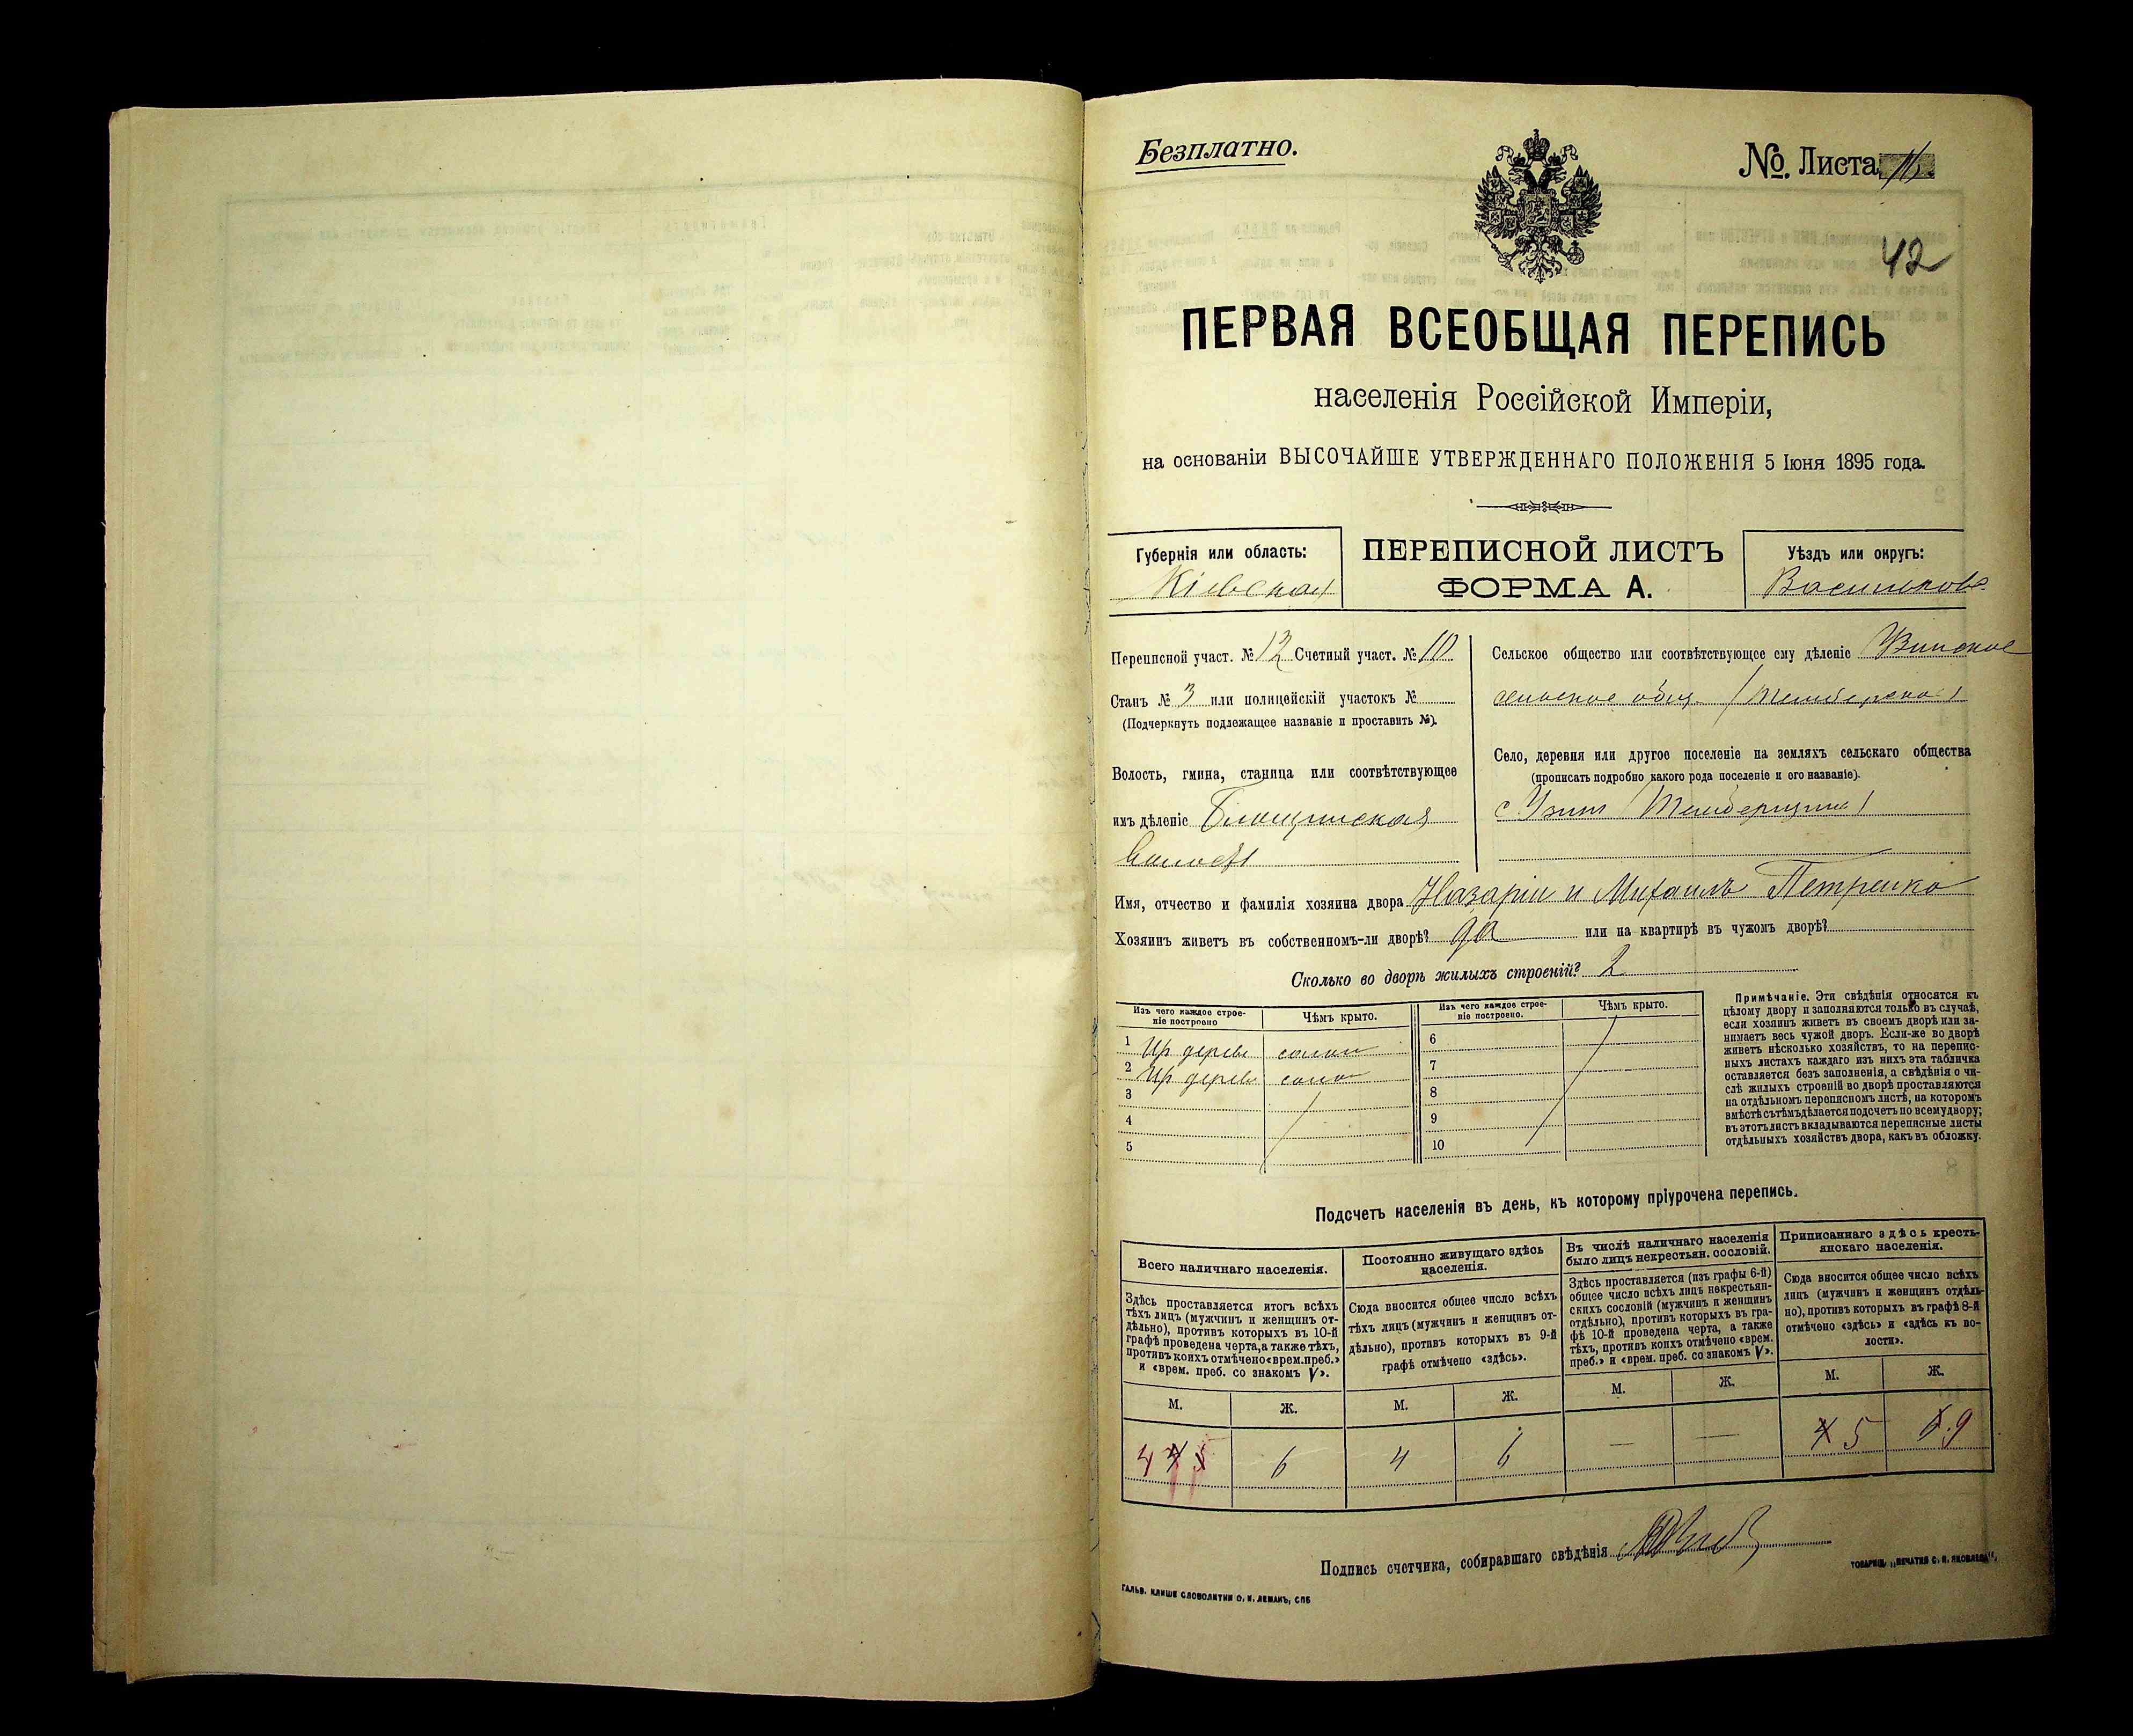 Безплатно.
№ Листа
42
ПЕРВАЯ ВСЕОБЩАЯ ПЕРЕПИСЬ
населенія Россійской Имперіи,
на основаніи ВЫСОЧАЙШЕ УТВЕРЖДЕННАГО ПОЛОЖЕНІЯ 5 Іюня 1895 года.
Губернія или область:
Кіевская
ПЕРЕПИСНОЙ ЛИСТЪ
ФОРМА А.
Уѣздъ или округъ:
Васильков
Переписной участ. № 12 Счетный участ. № 10
Станъ № 3 или полицейскій участокъ №
(Подчеркнуть подлежащее названіе и проставить №).
Волость, гмина, станица или соотвѣтствующее
имъ дѣленіе
волость
Сельское общество или соотвѣтствующее ему дѣленіе Узинское
сельское общ.
Село, деревня или другое поселеніе на земляхъ сельскаго общества
(прописать подробно какого рода поселеніе и его названіе).
с Узин
Имя, отчество и фамилія хозяина двора Назарій и Михаилъ Петренко
Хозяинъ живетъ въ собственномъ-ли дворѣ? да или на квартирѣ въ чужомъ дворѣ?
Сколько во дворѣ жилыхъ строеній? 2
Изъ чего каждое строе-
ніе построено
Чѣмъ крыто.
Изъ чего каждое строе-
ніе построено.
Чѣмъ крыто.
1 дерев солом
2 дерев соло
3
4
5
6
7
8
9
10
Примѣчаніе. Эти свѣдѣнія относятся къ
цѣлому двору и заполняются только въ случаѣ,
если хозяинъ живетъ въ своемъ дворѣ или за-
нимаетъ весь чужой дворъ. Если-же во дворѣ
живетъ нѣсколько хозяйствъ, то на перепис-
ныхъ листахъ каждаго изъ нихъ эта табличка
оставляется безъ заполненія, а свѣдѣнія о чи-
слѣ жилыхъ строеній во дворѣ проставляются
на отдѣльномъ переписномъ листѣ, на которомъ
вмѣстѣ съ тѣмъ дѣлается подсчетъ по всему двору;
въ этотъ листъ вкладываются переписные листы
отдѣльныхъ хозяйствъ двора, какъ въ обложку.
Подсчетъ населенія въ день, къ которому пріурочена перепись.
Всего наличнаго населенія.
Здѣсь проставляется итогъ всѣхъ
тѣхъ лицъ (мужчинъ и женщинъ от-
дѣльно), противъ которыхъ въ 10-й
графѣ проведена черта, а также тѣхъ,
противъ коихъ отмѣчено «врем. преб.»
и «врем. преб. со знакомъ V».
Постоянно живущаго здѣсь
населенія.
Сюда вносится общее число всѣхъ
тѣхъ лицъ (мужчинъ и женщинъ от-
дѣльно), противъ которыхъ въ 9-й
графѣ отмѣчено «здѣсь».
Въ числѣ наличнаго населенія
было лицъ некрестьян. сословій.
Здѣсь проставляется (изъ графы 6-й)
общее число всѣхъ лицъ некрестьян-
скихъ сословій (мужчинъ и женщинъ
отдѣльно), противъ которыхъ въ гра-
фѣ 10-й проведена черта, а также
тѣхъ, противъ коихъ отмѣчено «врем.
преб.» и «врем. преб. со знакомъ V».
Приписаннаго здѣсь кресть-
янскаго населенія.
Сюда вносится общее число всѣхъ
лицъ (мужчинъ и женщинъ отдѣль-
но), противъ которыхъ въ графѣ 8-й
отмѣчено «здѣсь» и «здѣсь къ во-
лости».
М. Ж. М. Ж. М. Ж. М. Ж.
4 4 5 6 4 6 — — 4 5 6 9
Подпись счетчика, собиравшаго свѣдѣнія
ГАЛЬВ. КЛИШЕ СЛОВОЛИТНИ О. И. ЛЕМАНЪ, СПБ
ТОВАРИЩ. „ПЕЧАТНЯ С. П. ЯКОВЛЕВА“,